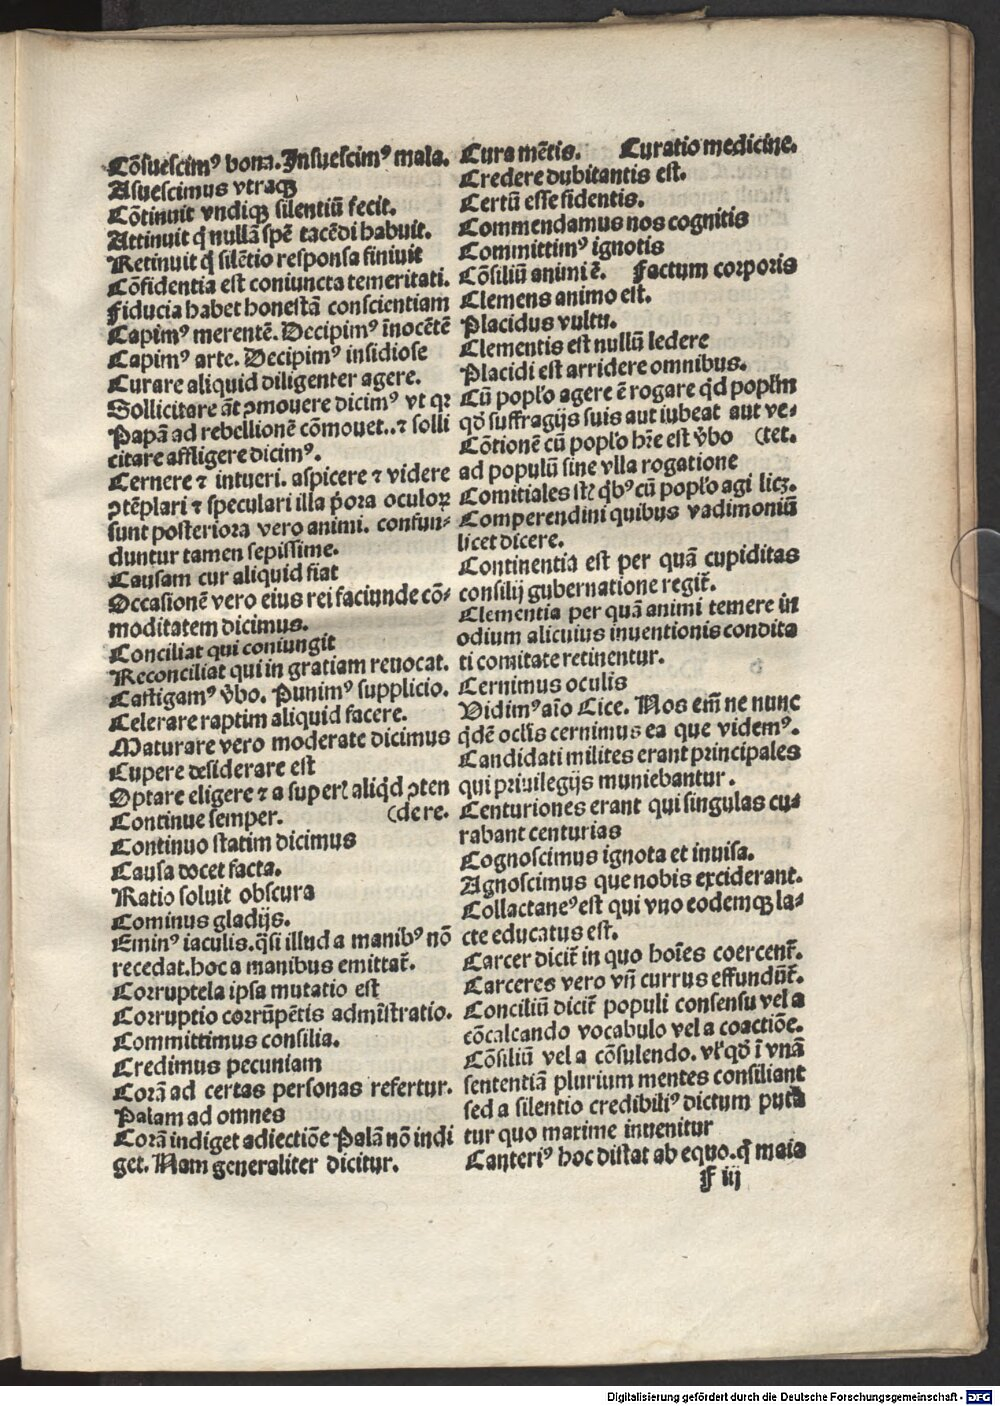 Cõsuescimꝰ bona. Insuescimꝰ mala.
Asuescimus vtraqꝫ
Cõtinuit vndiqꝫ silentiũ fecit.
Attinuit q̃ nullã spẽ tacẽdi habuit.
Retinuit q̃ silẽtio responsa finiuit
Cõfidentia est coniuncta temeritati.
Fiducia habet honestã conscientiam
Capimꝰ merentẽ. Decipimꝰ ĩnocẽtẽ
Capimꝰ arte. Decipimꝰ insidiose
Curare aliquid diligenter agere.
Sollicitare ãt ꝓmouere dicimꝰ vt qꝛ
Papã ad rebellionẽ cõmouet..⁊ solli
citare affligere dicimꝰ.
Cernere ⁊ intueri. aspicere ⁊ videre
ꝯtẽplari ⁊ speculari illa p̃ora oculoꝝ
sunt posteriora vero animi. confun-
duntur tamen sepissime.
Causam cur aliquid fiat
Occasionẽ vero eius rei faciunde cõ-
moditatem dicimus.
Conciliat qui coniungit
Reconciliat qui in gratiam reuocat.
Castigamꝰ v̓bo. Punimꝰ supplicio.
Celerare raptim aliquid facere.
Maturare vero moderate dicimus
Cupere desiderare est
Optare eligere ⁊ a superĩ aliq̃d ꝯten
Continue semper. (dere.
Continuo statim dicimus
Causa docet facta.
Ratio soluit obscura
Cominus gladijs.
Eminꝰ iaculis. q̃si illud a manibꝰ nõ
recedat. hoc a manibus emittat᷑.
Corruptela ipsa mutatio est
Corruptio corrũpẽtis admĩstratio.
Committimus consilia.
Credimus pecuniam
Corã ad certas personas refertur.
Palam ad omnes
Corã indiget adiectiõe Palã nõ indi
get. Nam generaliter dicitur.
Cura mẽtis. Curatio medicine.
Credere dubitantis est.
Certũ esse fidentis.
Commendamus nos cognitis
Committimꝰ ignotis
Cõsiliũ animi ẽ. Factum corporis
Clemens animo est.
Placidus vultu.
Clementis est nullũ ledere
Placidi est arridere omnibus.
Cũ popl̓o agere ẽ rogare q̃d popl̓m
qd̓ suffragijs suis aut iubeat aut ve-
Cõtionẽ cũ popl̓o hr̃e est v̓bo (tet.
ad populũ sine vlla rogatione
Comitiales st̃ q̃bꝰ cũ popl̓o agi licꝫ.
Comperendini quibus vadimoniũ
licet dicere.
Continentia est per quã cupiditas
consilij gubernatione regit᷑.
Clementia per quã animi temere in
odium alicuius inuentionis condita
ti comitate retinentur.
Cernimus oculis
Vidimꝰ aĩo Cice. Nos em̃ ne nunc
q̃dẽ ocl̓is cernimus ea que videmꝰ.
Candidati milites erant principales
qui priuilegijs muniebantur.
Centuriones erant qui singulas cu-
rabant centurias
Cognoscimus ignota et inuisa.
Agnoscimus que nobis exciderant.
Collactaneꝰ est qui vno eodemqꝫ la-
cte educatus est.
Carcer dicit᷑ in quo hoĩes coercent᷑.
Carceres vero vñ currus effundũt᷑.
Conciliũ dicit᷑ populi consensu vel a
cõcalcando vocabulo vel a coactiõe.
Cõsiliũ vel a cõsulendo. vl̓ qd̓ ĩ vnã
sententiã plurium mentes consiliant
sed a silentio credibiliꝰ dictum puta
tur quo maxime inuenitur
Canteriꝰ hoc distat ab equo. q̃ maia
F iij
Digitalisierung gefördert durch die Deutsche Forschungsgemeinschaft - DFG